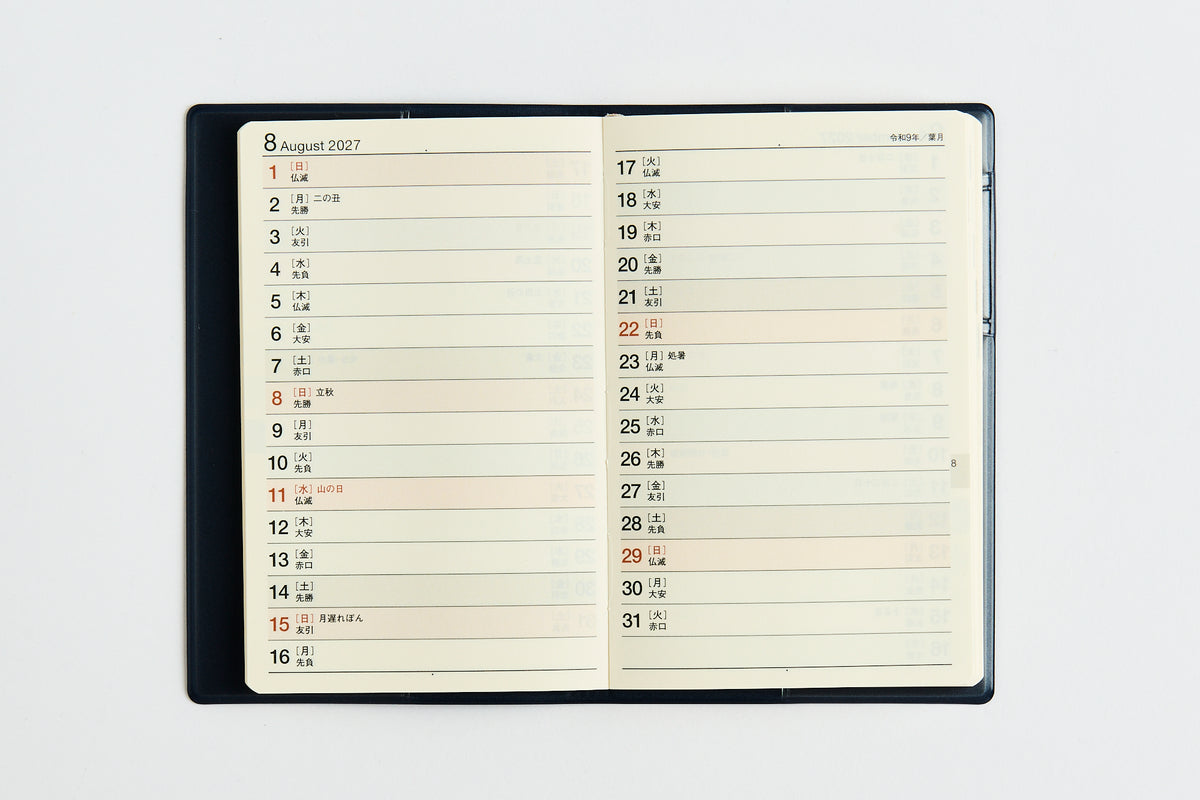 8 August 2027
1 [日]
仏滅
2 [月] 二の丑
先勝
3 [火]
友引
4 [水]
先負
5 [木]
仏滅
6 [金]
大安
7 [土]
赤口
8 [日] 立秋
先勝
9 [月]
友引
10 [火]
先負
11 [水] 山の日
仏滅
12 [木]
大安
13 [金]
赤口
14 [土]
先勝
15 [日] 月遅れぼん
友引
16 [月]
先負
令和9年/葉月
17 [火]
仏滅
18 [水]
大安
19 [木]
赤口
20 [金]
先勝
21 [土]
友引
22 [日]
先負
23 [月] 処暑
仏滅
24 [火]
大安
25 [水]
赤口
26 [木]
先勝
27 [金]
友引
28 [土]
先負
29 [日]
仏滅
30 [月]
大安
31 [火]
赤口
8